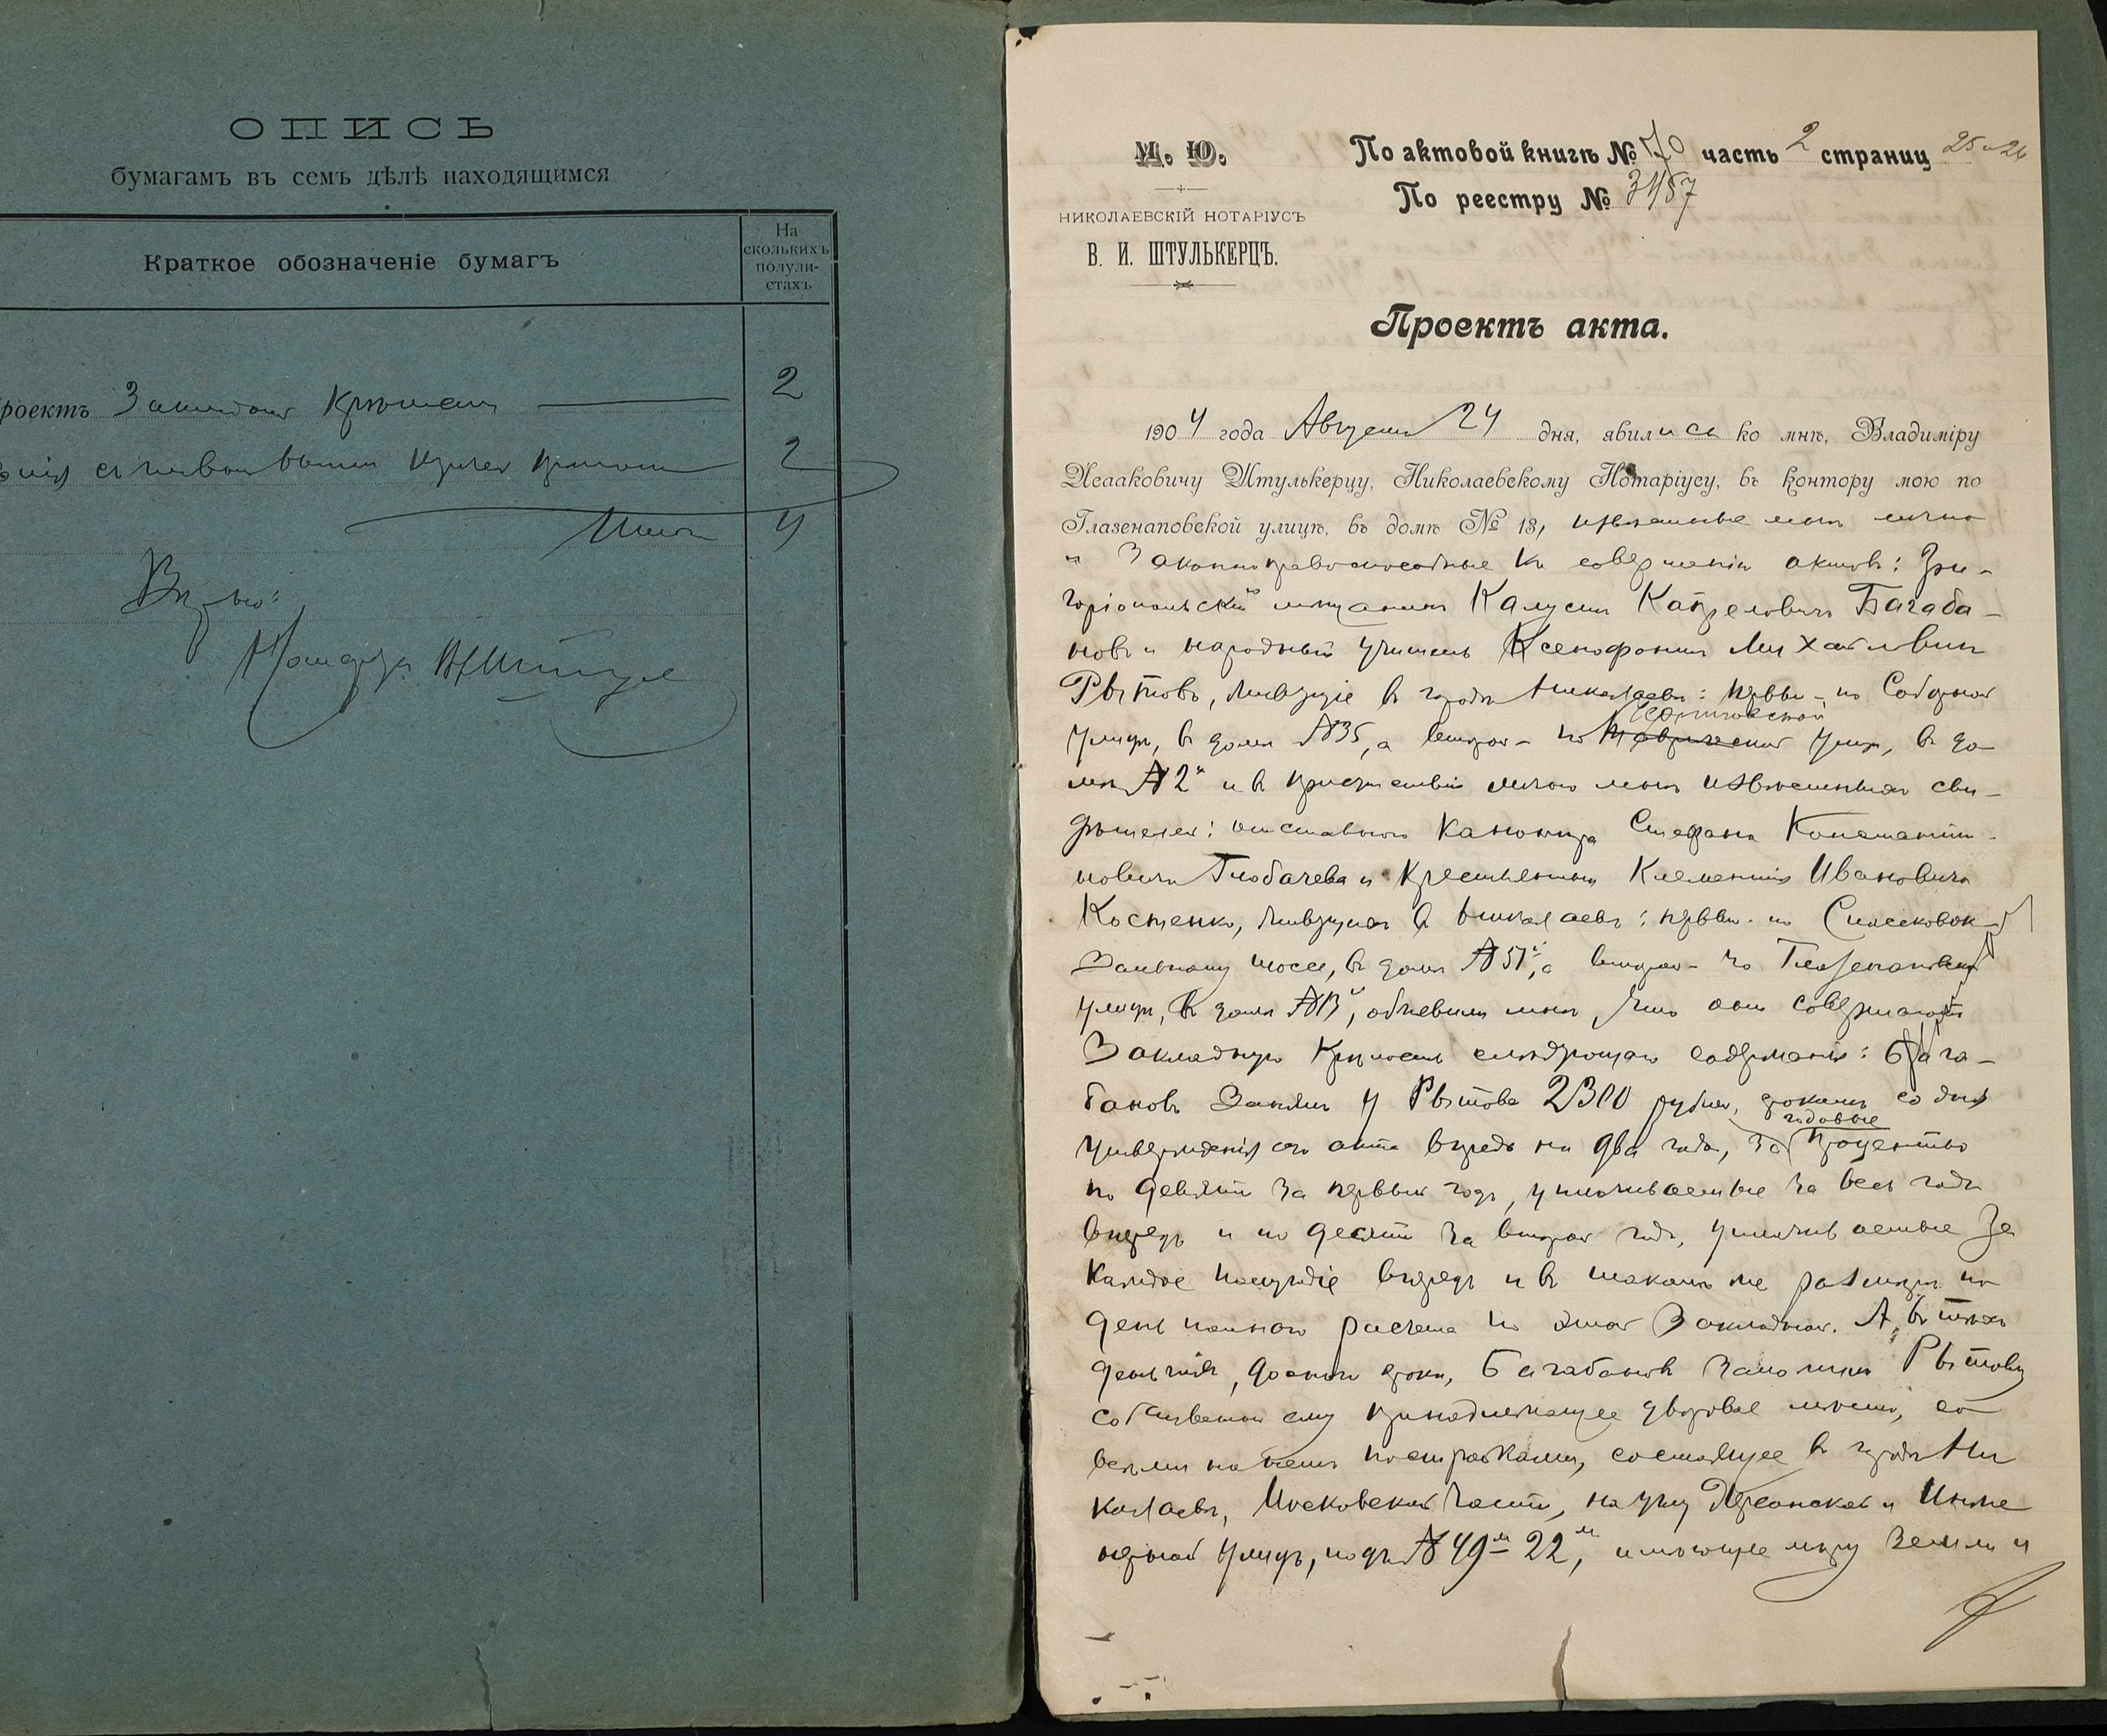 ОПИСЬ
бумагамъ въ семъ дѣлѣ находящимся
Краткое обозначеніе бумагъ
На
сколькихъ
полули-
стахъ
роектъ Закладной Крѣпости
2
2
Итого
4
М. Ю.
НИКОЛАЕВСКІЙ НОТАРІУСЪ
В. И. ШТУЛЬКЕРЦЪ.
По актовой книгѣ № 70 часть 2 страниц 25 и 26
По реестру № 3157
Проектъ акта.
1904 года Августа 24 дня, явились ко мнѣ, Владиміру
Исааковичу Штулькерцу, Николаевскому Нотаріусу, въ контору мою по
Глазенаповской улицѣ, въ домѣ № 13, извѣстные мнѣ лично
и законноправоспособные къ совершенію актовъ: Гри-
горіопольскій мѣщанинъ Калустъ Багаба-
новъ и народный учитель Ксенофонтъ Михайловичъ
Рѣтовъ, живущіе въ городѣ Николаевѣ: первый по Соборной
улицѣ, въ домѣ № 35, а второй по улицѣ, въ до-
мѣ № 2й и въ присутствіи лично мнѣ извѣстныхъ сви-
дѣтелей: отставного канонира Стефана Константи-
новича Глобачева и крестьянина Климентія Ивановича
Костенко, живущихъ въ Николаевѣ: первый по
шоссе, въ домѣ № 51й, а второй по Глазенаповской
улицѣ, въ домѣ № 13й, объявили мнѣ, что они совершаютъ
Закладную Крѣпость слѣдующаго содержанія: Бага-
бановъ занялъ у Рѣтова 2300 рублей, срокомъ со дня
годовые
утвержденія сего акта впредь на два года, за проценты
по девяти за первый годъ, уплачиваемые за весь годъ
впередъ и по десяти за второй годъ, уплачиваемые за
каждое полугодіе впередъ и въ такомъ же размѣрѣ по
день полнаго расчета по этой Закладной. А въ тѣхъ
деньгахъ, до того срока, Багабановъ заложилъ Рѣтову
собственно ему принадлежащее дворовое мѣсто, со
всѣми на немъ постройками, состоящее въ городѣ Ни
колаевѣ, Московской части, на углу Херсонской и Инже
нерной улицъ, подъ № 49м – 22м, имѣющее мѣру земли и